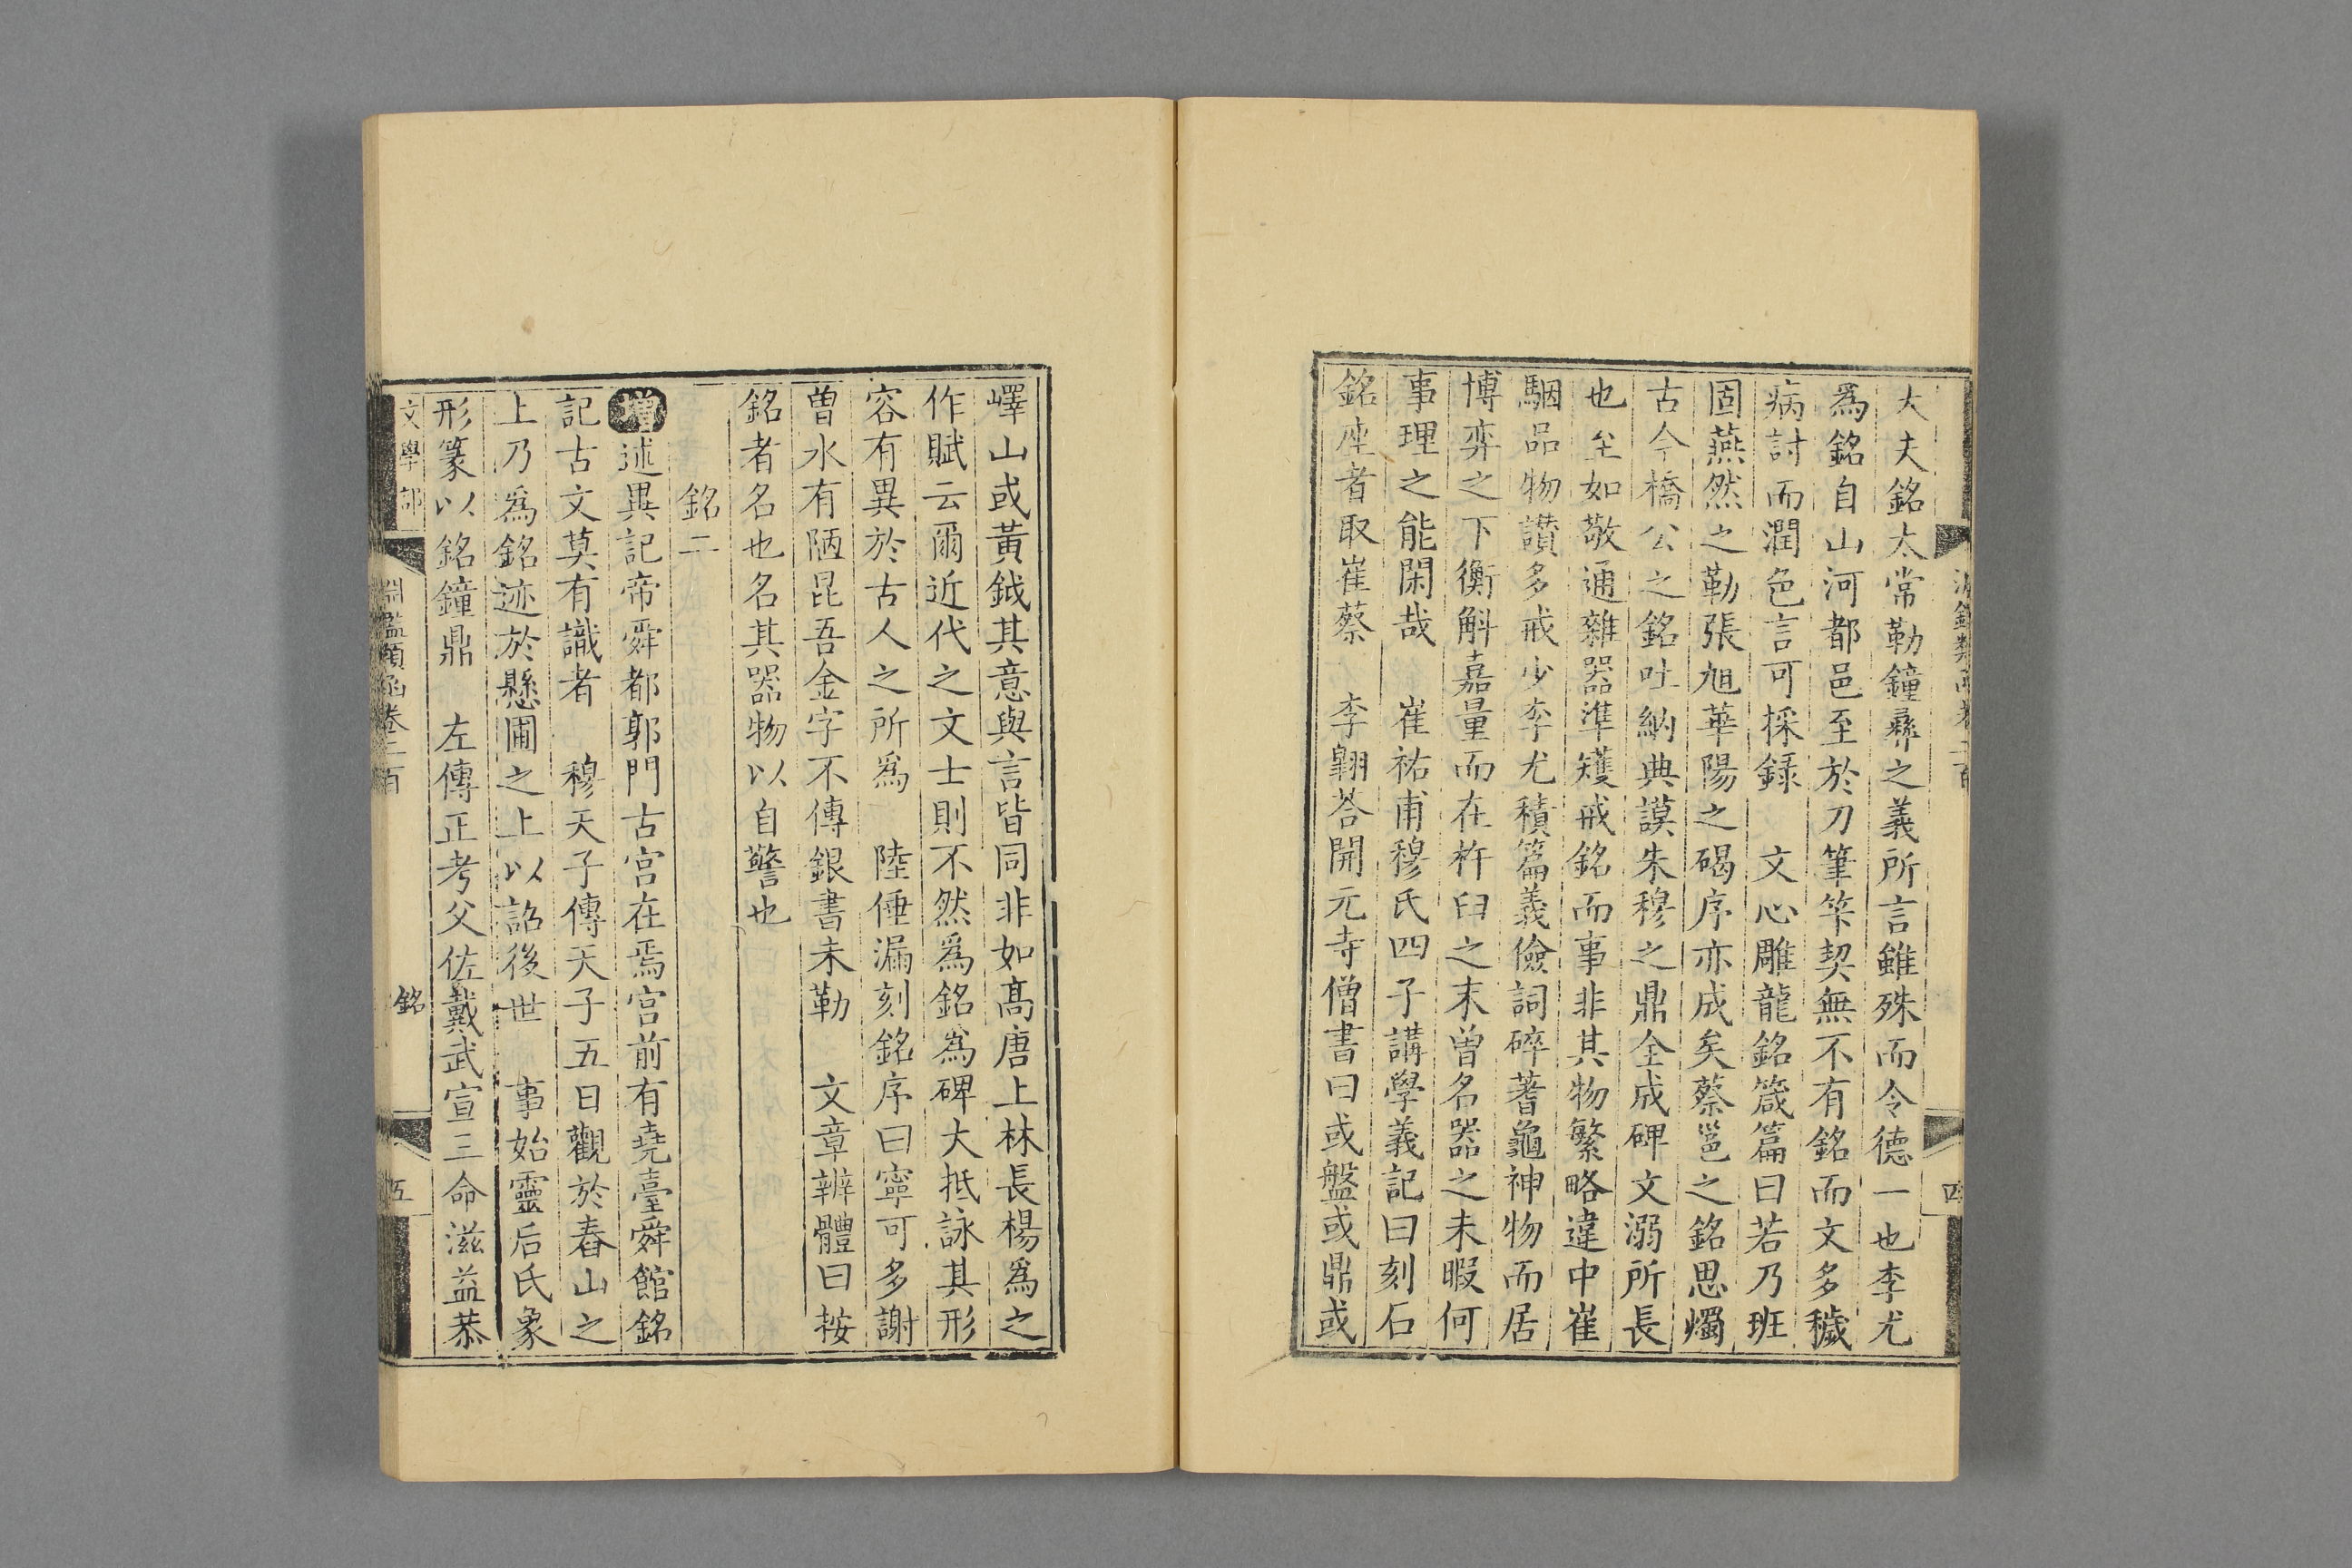 大夫銘太常勒鐘彞之義所言雖殊而令德一也李尤
爲銘自山河都邑至於刀筆笇契無不有銘而文多穢
病討而潤色言可採録　文心雕龍銘箴篇曰若乃班
固燕然之勒張旭華陽之碣序亦成矣蔡邕之銘思燭
古今橋公之銘吐納典謨朱穆之鼎全成碑文溺所長
也至如敬通雜器準矱戒銘而事非其物繁略違中崔
駰品物讃多戒少李尤積篇義儉詞碎蓍龜神物而居
博弈之下衡斛嘉量而在杵臼之末曾名器之未暇何
事理之能閑哉　崔祐甫穆氏四子講學義記曰刻石
銘座者取崔蔡　李翺荅開元寺僧書曰或盤或鼎或
四
嶧山或黃鉞其意與言皆同非如髙唐上林長楊爲之
作賦云爾近代之文士則不然爲銘爲碑大抵詠其形
容有異於古人之所爲　陸倕漏刻銘序曰寧可多謝
曽水有陋昆吾金字不傳銀書未勒　文章辨體曰按
銘者名也名其器物以自警也
銘二
增述異記帝舜都郭門古宫在焉宫前有堯臺舜館銘
記古文莫有識者　穆天子傳天子五日觀於舂山之
上乃爲銘迹於懸圃之上以詔後世　事始靈后氏象
形篆以銘鐘鼎　左傳正考父佐戴武宣三命滋益恭
文學部
淵鑑類函卷二百
銘
五